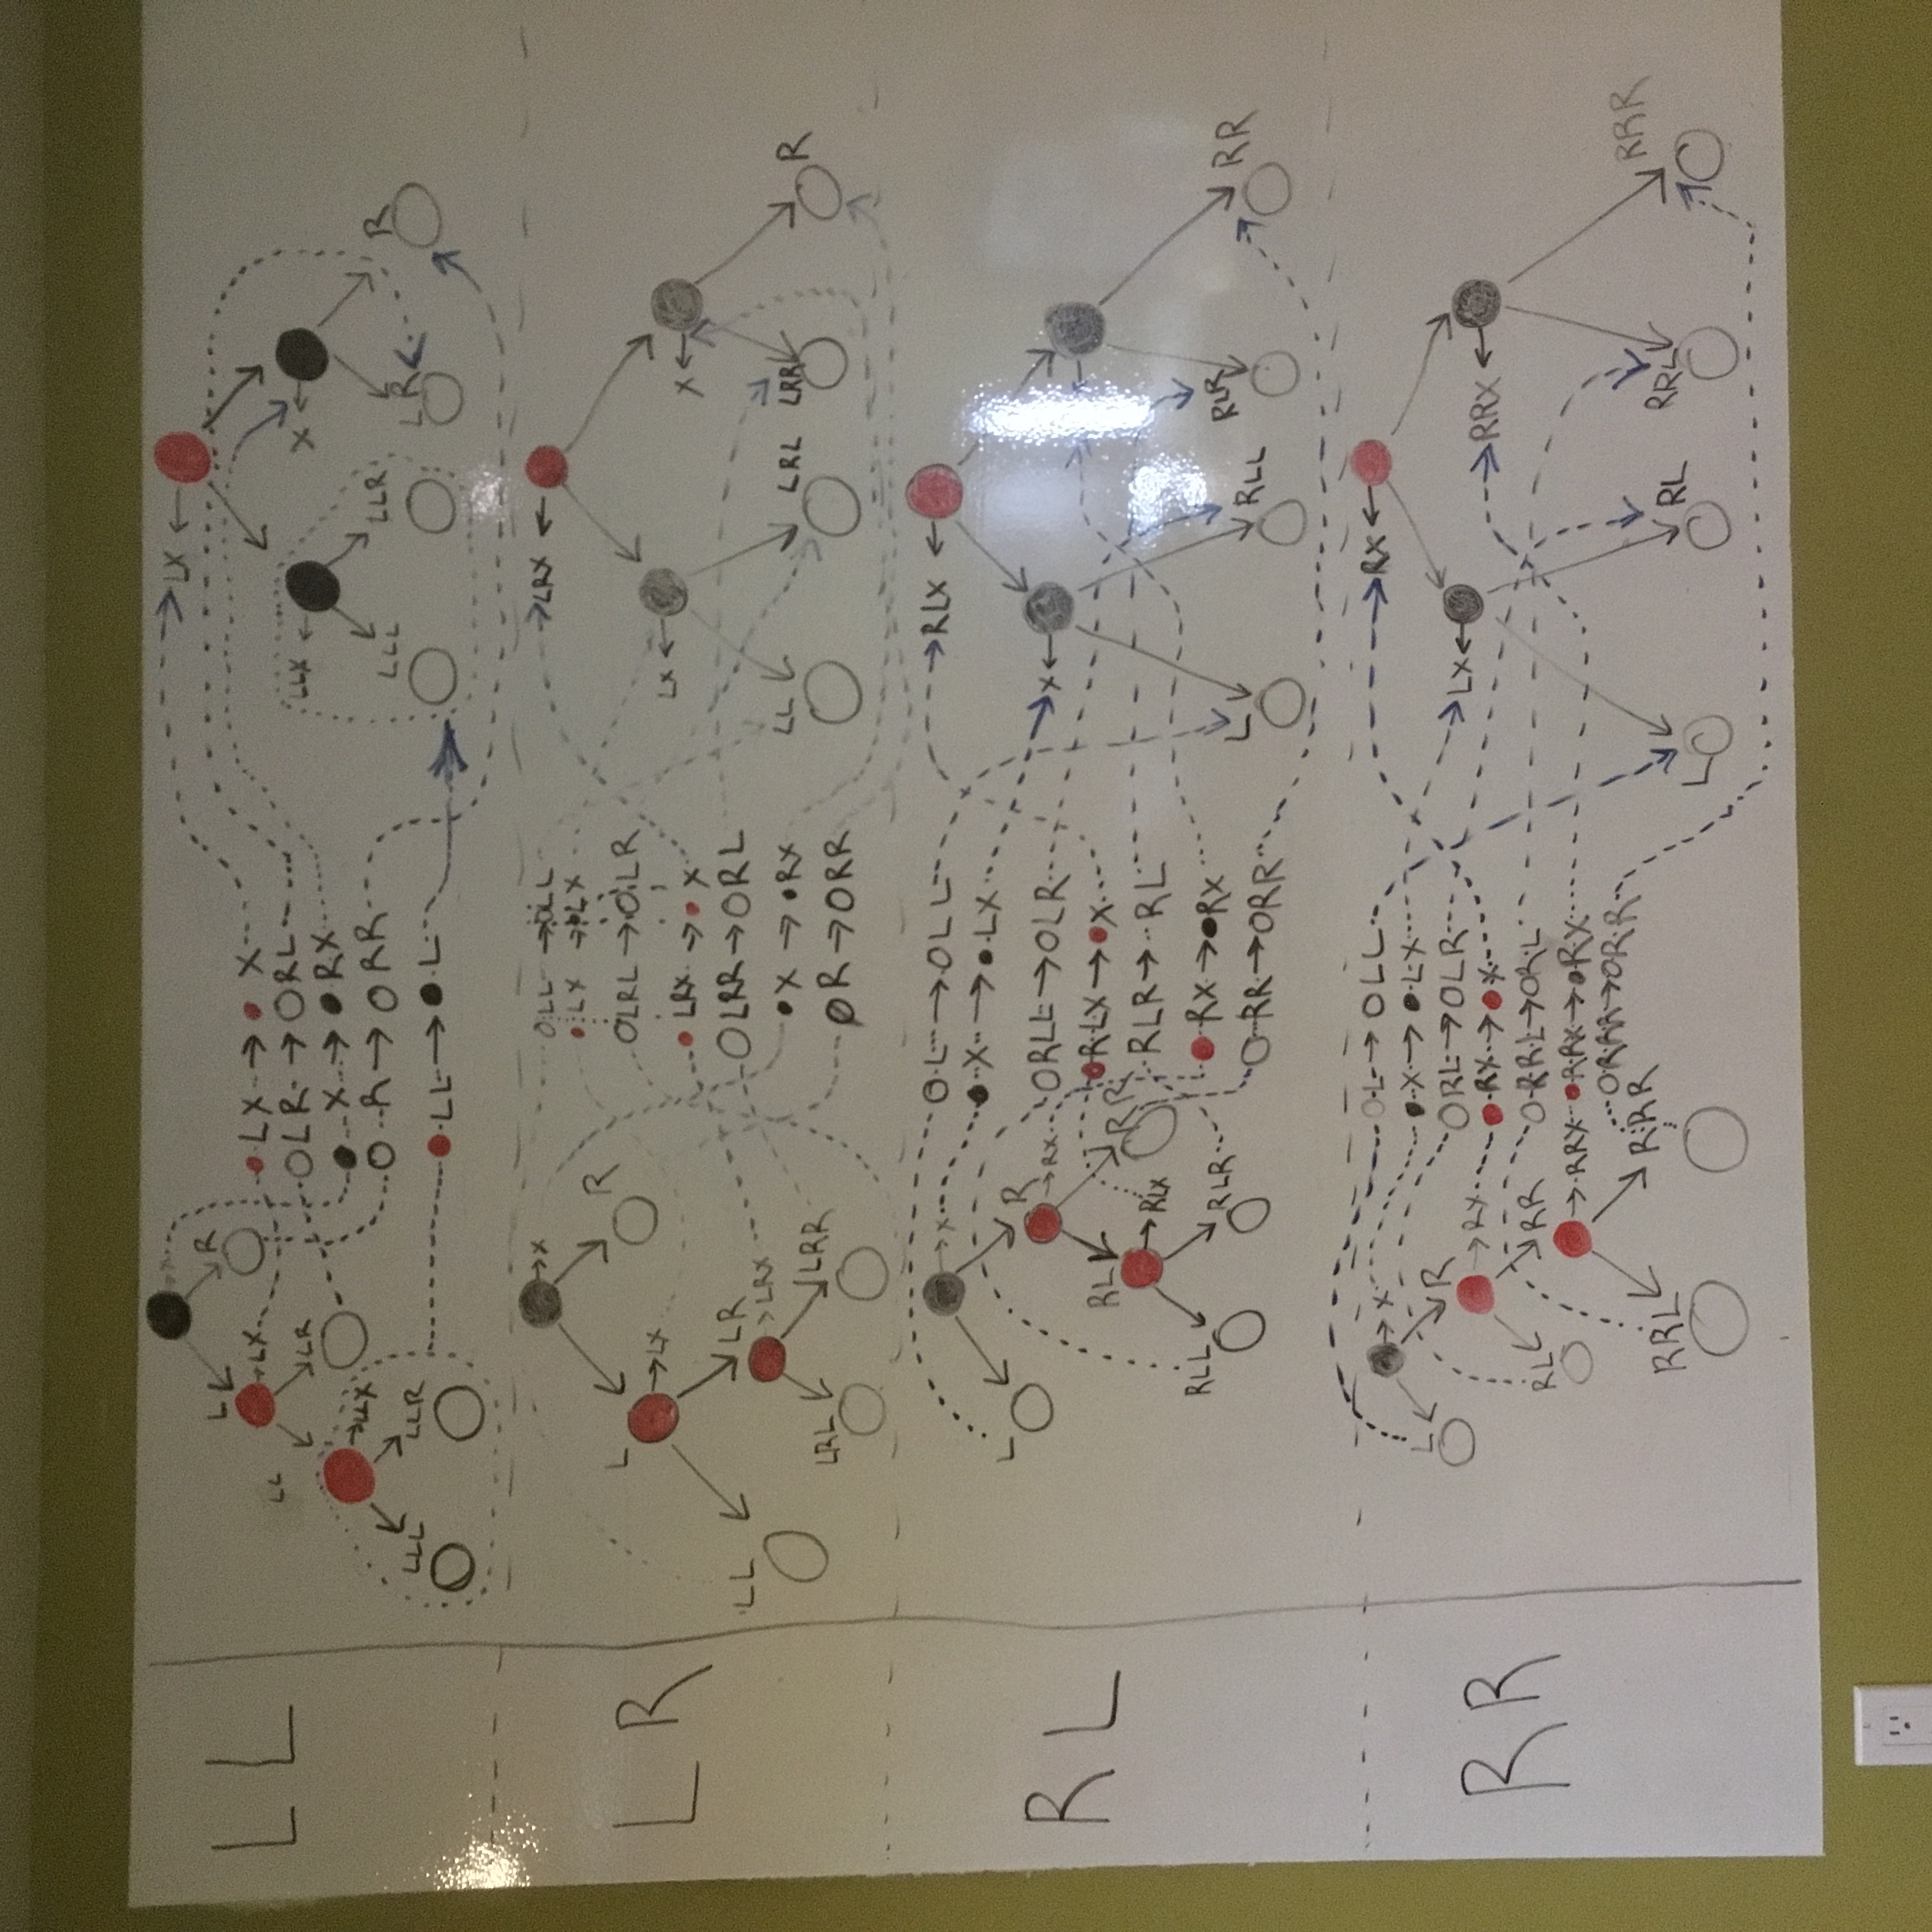 LL
L
R
LX
LL
LR
LLX
LLL
LLR
LX → X
OLR → ORL
X → RX
O R → ORR
LL → L
LX
LLX
X
LLL
LLR
LR
R
LR
X
L
R
LX
LL
LR
LRX
LRL
LRR
OLL → OLL
LX → LX
OLRL → OLR
LRX → X
OLRR → ORL
X → RX
OR → ORR
LRX
LX
X
LL
LRL
LRR
R
RL
X
L
R
RX
RL
RR
RLX
RLL
RLR
OL → OLL
X → LX
ORLL → OLR
RLX → X
RLR → RL
RX → RX
ORR → ORR
RLX
X
L
RLL
RLR
RR
RR
X
L
R
RX
RL
RR
RRX
RRL
RRR
OL → OLL
X → LX
ORL → OLR
RX → X
ORRL → ORL
RRX → RX
ORRR → ORR
RX
LX
RRX
L
RL
RRL
RRR